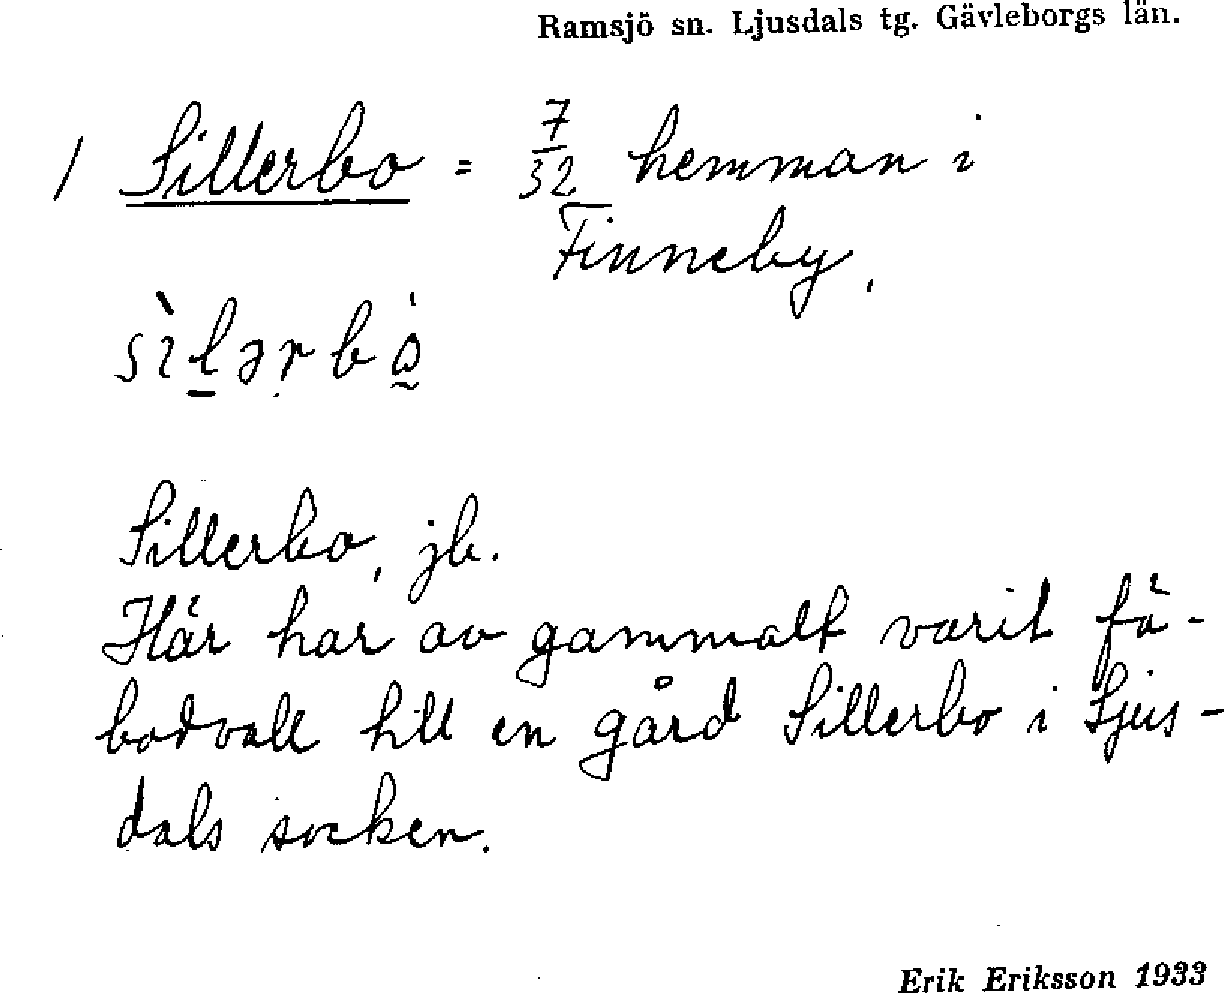 Ramsjö sn. Ljusdals tg. Gävleborgs län.
1 Sillerbo = 7/32 hemman i
Finneby.
Sillerbo, jb.
Här har av gammalt varit fä-
bodvall till en gård Sillerbo i Ljus-
dals socken.
Erik Eriksson 1933